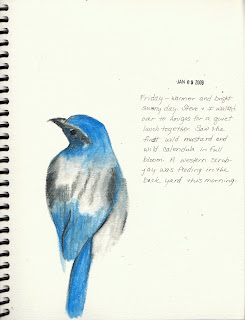 JAN 09 2009
Friday - warmer and bright
sunny day. Steve + I walked
over to for a quiet
lunch together. Saw the
first wild mustard and
wild calendula in full
bloom. A western scrub-
jay was feeding in the
back yard this morning.